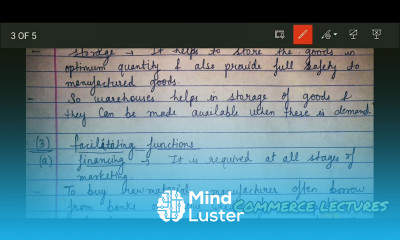 3 OF 5
- Storage → It helps to store the goods in
optimum quantity & also provide full safety to
manufactured goods.
- So warehouses helps in storage of goods &
they can be made available when there is demand
(3) facilitating functions
(a) financing → It is required at all stages of
marketing.
- To buy raw material, manufacturers often borrow
from banks
COMMERCE LECTURES
Mind
Luster